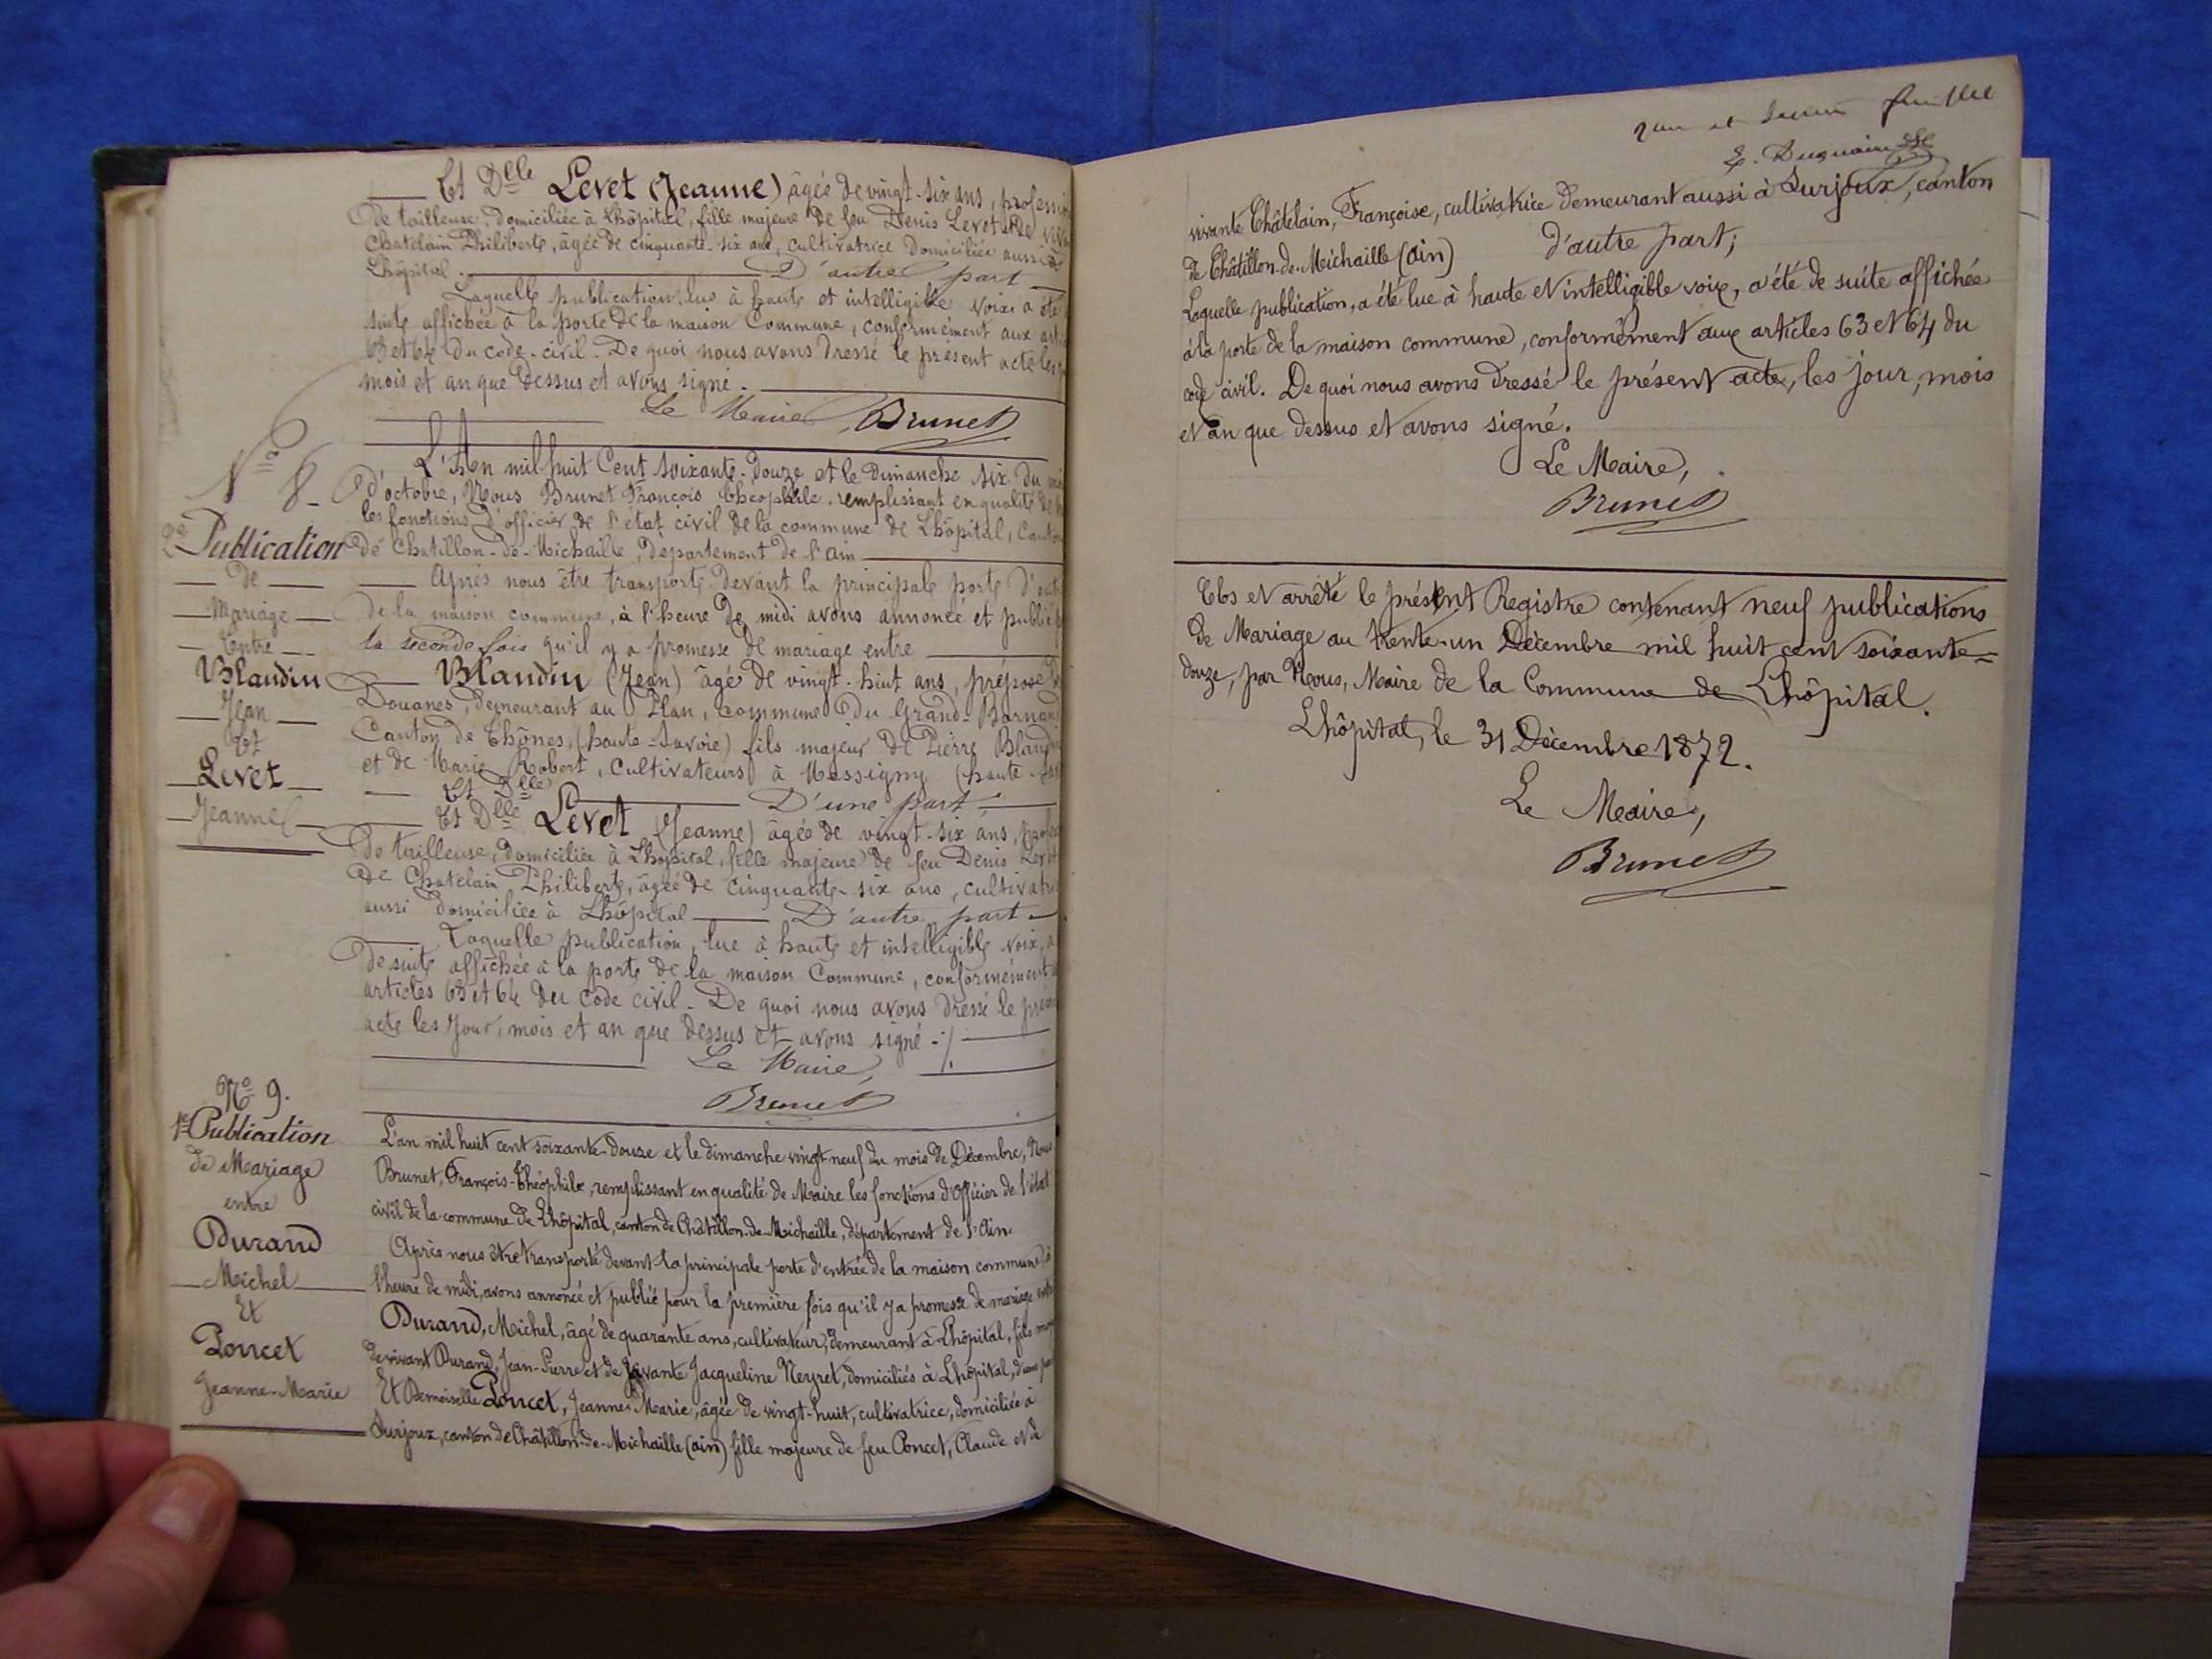 Et Dlle Levet (Jeanne) âgée de vingt-six ans, profession
de tailleuse, domiciliée à Lhôpital, fille majeure de feu Denis Levet et de
Chatelain Philiberte, âgée de cinquante-six ans, cultivatrice domiciliée aussi à
Lhôpital. D'autre part
Laquelle publication, lue à haute et intelligible voix, a été
suite affichée à la porte de la maison Commune, conformément aux
63 et 64 du code-civil. De quoi nous avons dressé le présent acte les
mois et an que dessus et avons signé.
Le Maire, Brunet
No 8
2e Publication
de
Mariage
Entre
Blandin
Jean
Et
Levet
Jeanne
L'An mil huit Cent soixante-douze et le dimanche six du
d'octobre, Nous Brunet François Théophile, remplissant en qualité de
les fonctions d'officier de l'état civil de la commune de Lhôpital, Canton
de Chatillon-de-Michaille, département de l'ain
Après nous être transporté devant la principale porte
de la maison commune, à l'heure de midi avons annoncé et publié
la seconde fois qu'il y a promesse de mariage entre
Blandin (Jean) âgé de vingt-huit ans, préposé
Douanes, demeurant au Plan, commune du Grand-
Canton de Thônes, (haute-Savoie) fils majeur de Pierre Blandin
et de Marie Robert, Cultivateurs à Massigny (haute-
Et Dlle D'une part
Et Dlle Levet (Jeanne) âgée de vingt-six ans,
de tailleuse, domiciliée à Lhopital, fille majeure de feu Denis Levet
de Chatelain Philiberte, âgée de cinquante-six ans, cultivatrice
aussi domiciliée à Lhôpital D'autre part
Laquelle publication, lue à haute et intelligible voix, a
de suite affichée à la porte de la maison Commune, conformément
articles 63 et 64 du code civil. De quoi nous avons dressé le
acte les jour, mois et an que dessus et avons signé ./.
Le Maire,
Brunet
No 9.
1e Publication
de Mariage
entre
Durand
Michel
Et
Poncet
Jeanne-Marie
L'an mil huit cent soixante-douze et le dimanche vingt neuf du mois de Décembre, Nous
Brunet, François-Théophile, remplissant en qualité de Maire les fonctions d'Officier de l'état
civil de la commune de Lhôpital, canton de Châtillon-de-Michaille, département de l'Ain.
Après nous être transporté devant la principale porte d'entrée de la maison commune, à
l'heure de midi, avons annoncé et publié pour la première fois qu'il y a promesse de mariage entre
Durand, Michel, âgé de quarante ans, cultivateur, demeurant à Lhôpital, fils
de vivant Durand, Jean-Pierre et de vivante Jacqueline Neyret, domiciliés à Lhôpital, d'une part
Et Demoiselle Poncet, Jeanne Marie, âgée de vingt-huit, cultivatrice, domiciliée à
Surjoux, canton de Châtillon-de-Michaille (ain) fille majeure de feu Poncet, Claude et de
feuillet
vivante Châtelain, Françoise, cultivatrice demeurant aussi à Surjoux, canton
de Châtillon-de-Michaille (ain) d'autre part;
Laquelle publication, a été lue à haute et intelligible voix, a été de suite affichée
à la porte de la maison commune, conformément aux articles 63 et 64 du
code civil. De quoi nous avons dressé le présent acte, les jour, mois
et an que dessus et avons signé.
Le Maire,
Brunet
Clos et arrêté le présent Registre contenant neuf publications
de Mariage au trente-un Décembre mil huit cent soixante-
douze, par Nous, Maire de la Commune de Lhôpital.
Lhôpital, le 31 Décembre 1872.
Le Maire,
Brunet